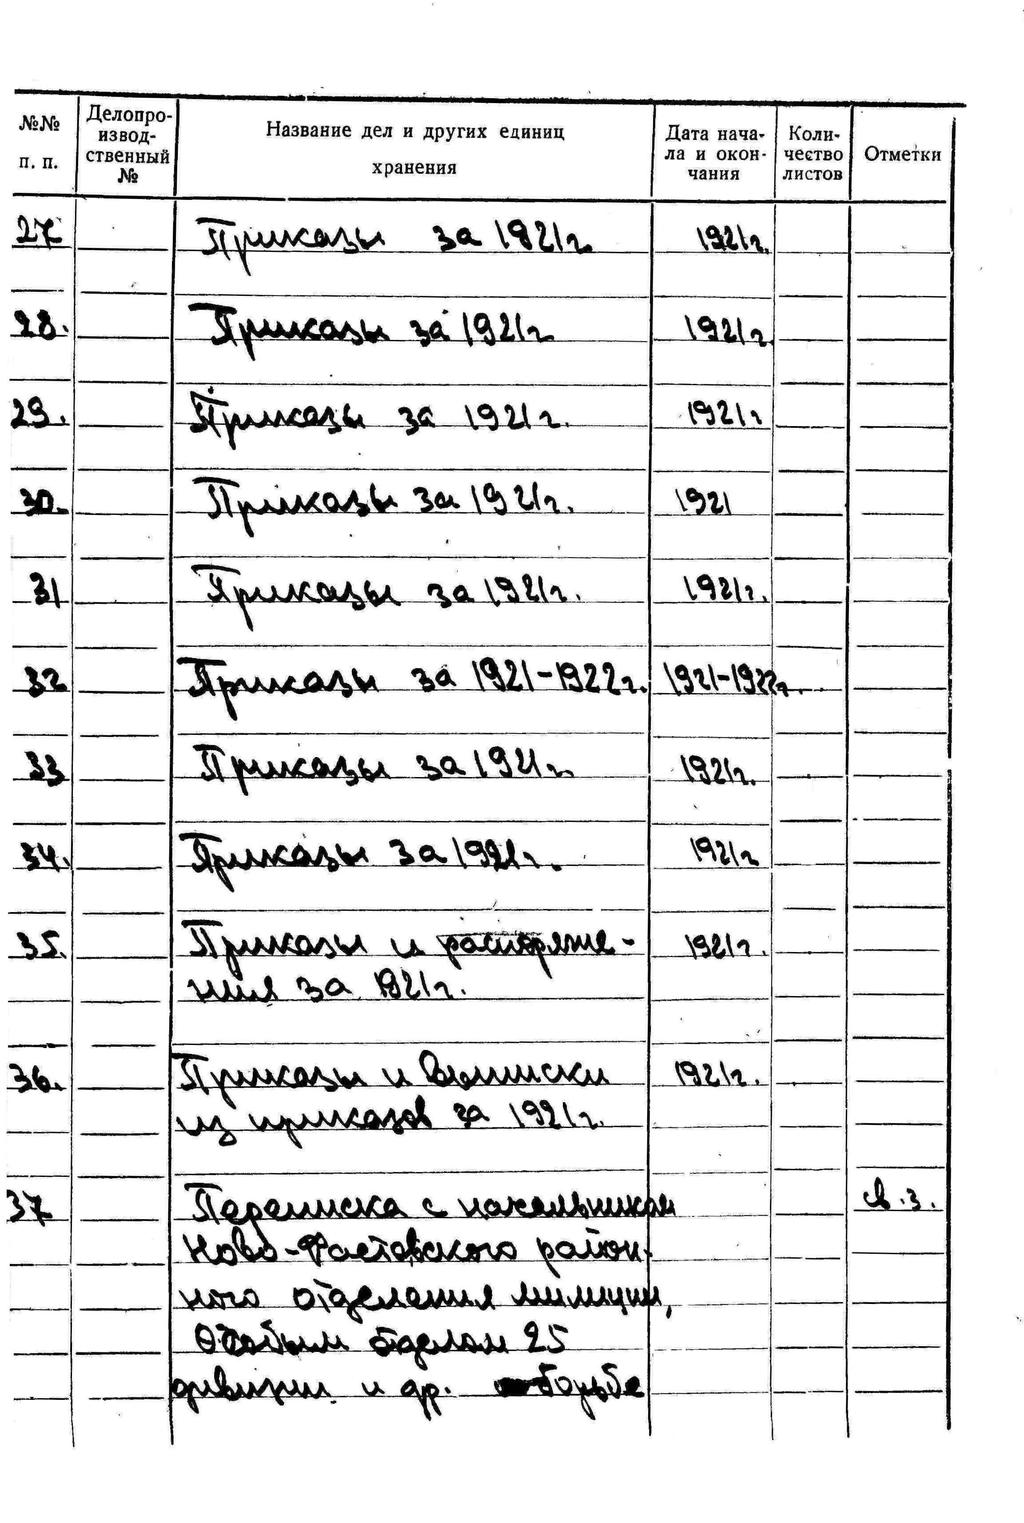 №№ п. п.
Делопро-
извод-
ственный
№
Название дел и других единиц
хранения
Дата нача-
ла и окон-
чания
Коли-
чество
листов
Отметки
27 Приказы за 1921г. 1921г.
28. Приказы за 1921г. 1921г.
29. Приказы за 1921г. 1921г
30. Приказы за 1921г. 1921
31 Приказы за 1921г. 1921г.
32 Приказы за 1921-1922г. 1921-1922г.
33 Приказы за 1921г. 1921г.
34. Приказы за 1921г. 1921г
35. Приказы и распоряже- 1921г.
ния за 1921г.
36. Приказы и выписки 1921г.
из приказов за 1921г.
37 Переписка с начальником св. 3.
Ново-Фастовского район-
ного отделения милиции,
Особым отделом 25
дивизии и др. борьбе